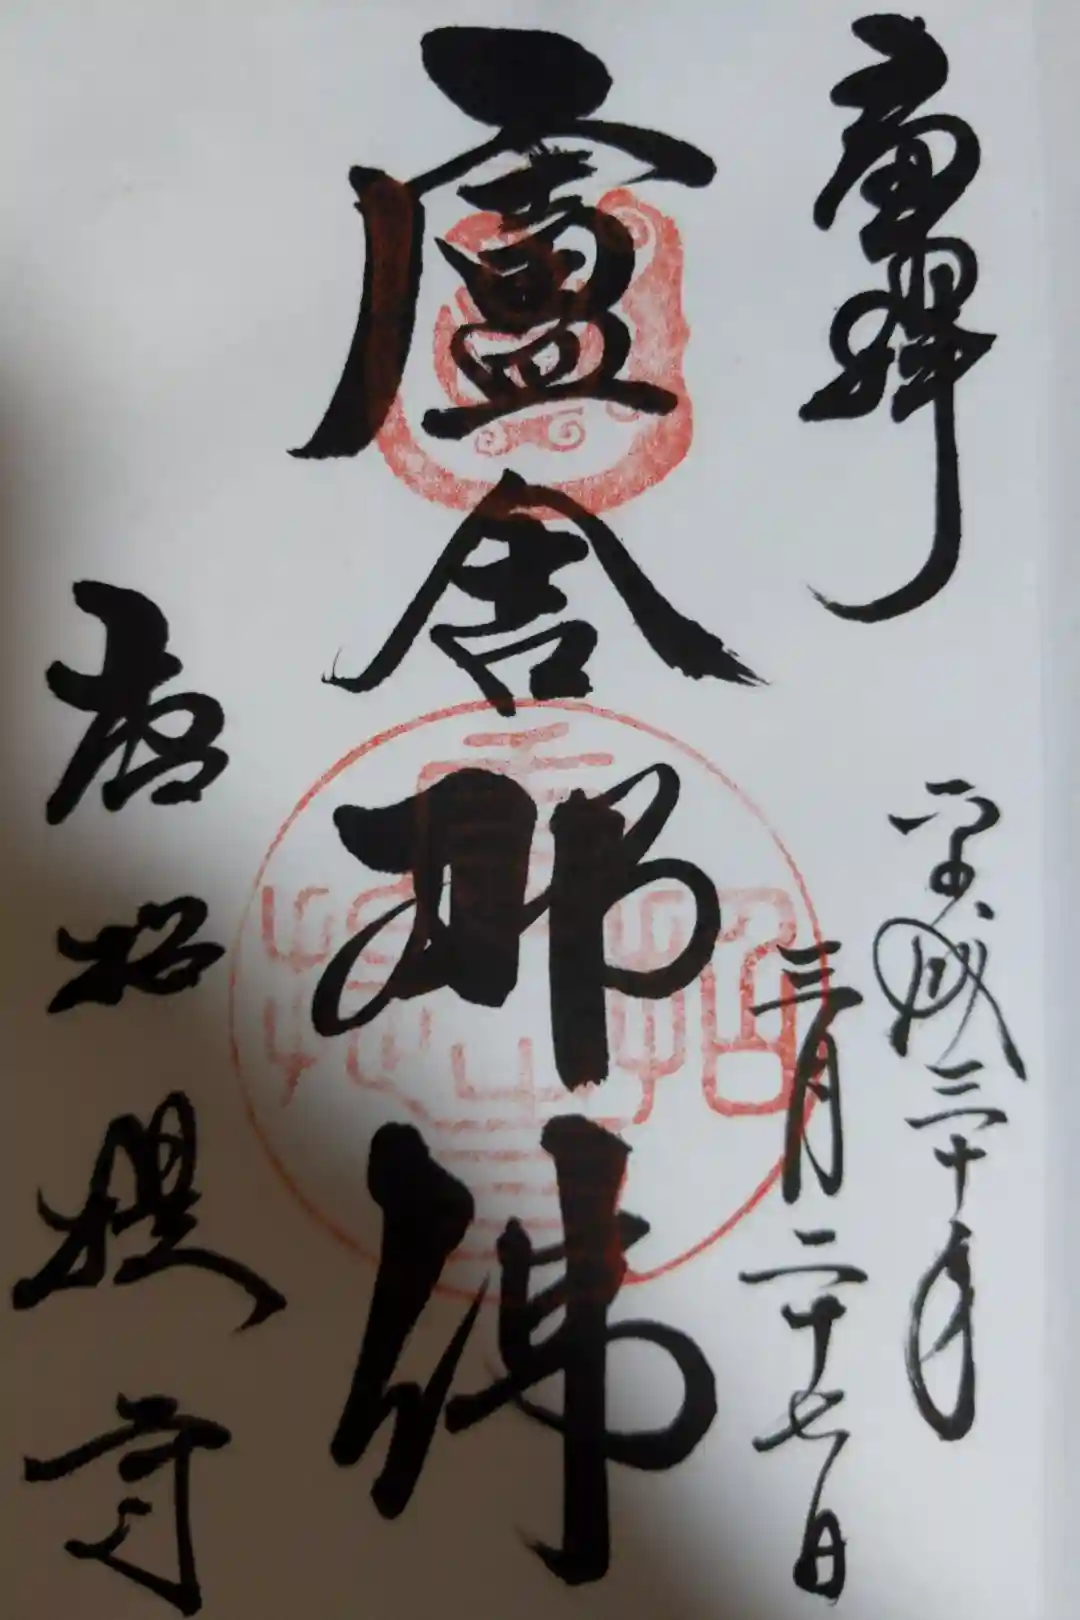 平成三十年
三月二十七日
盧舎那佛
唐招提寺